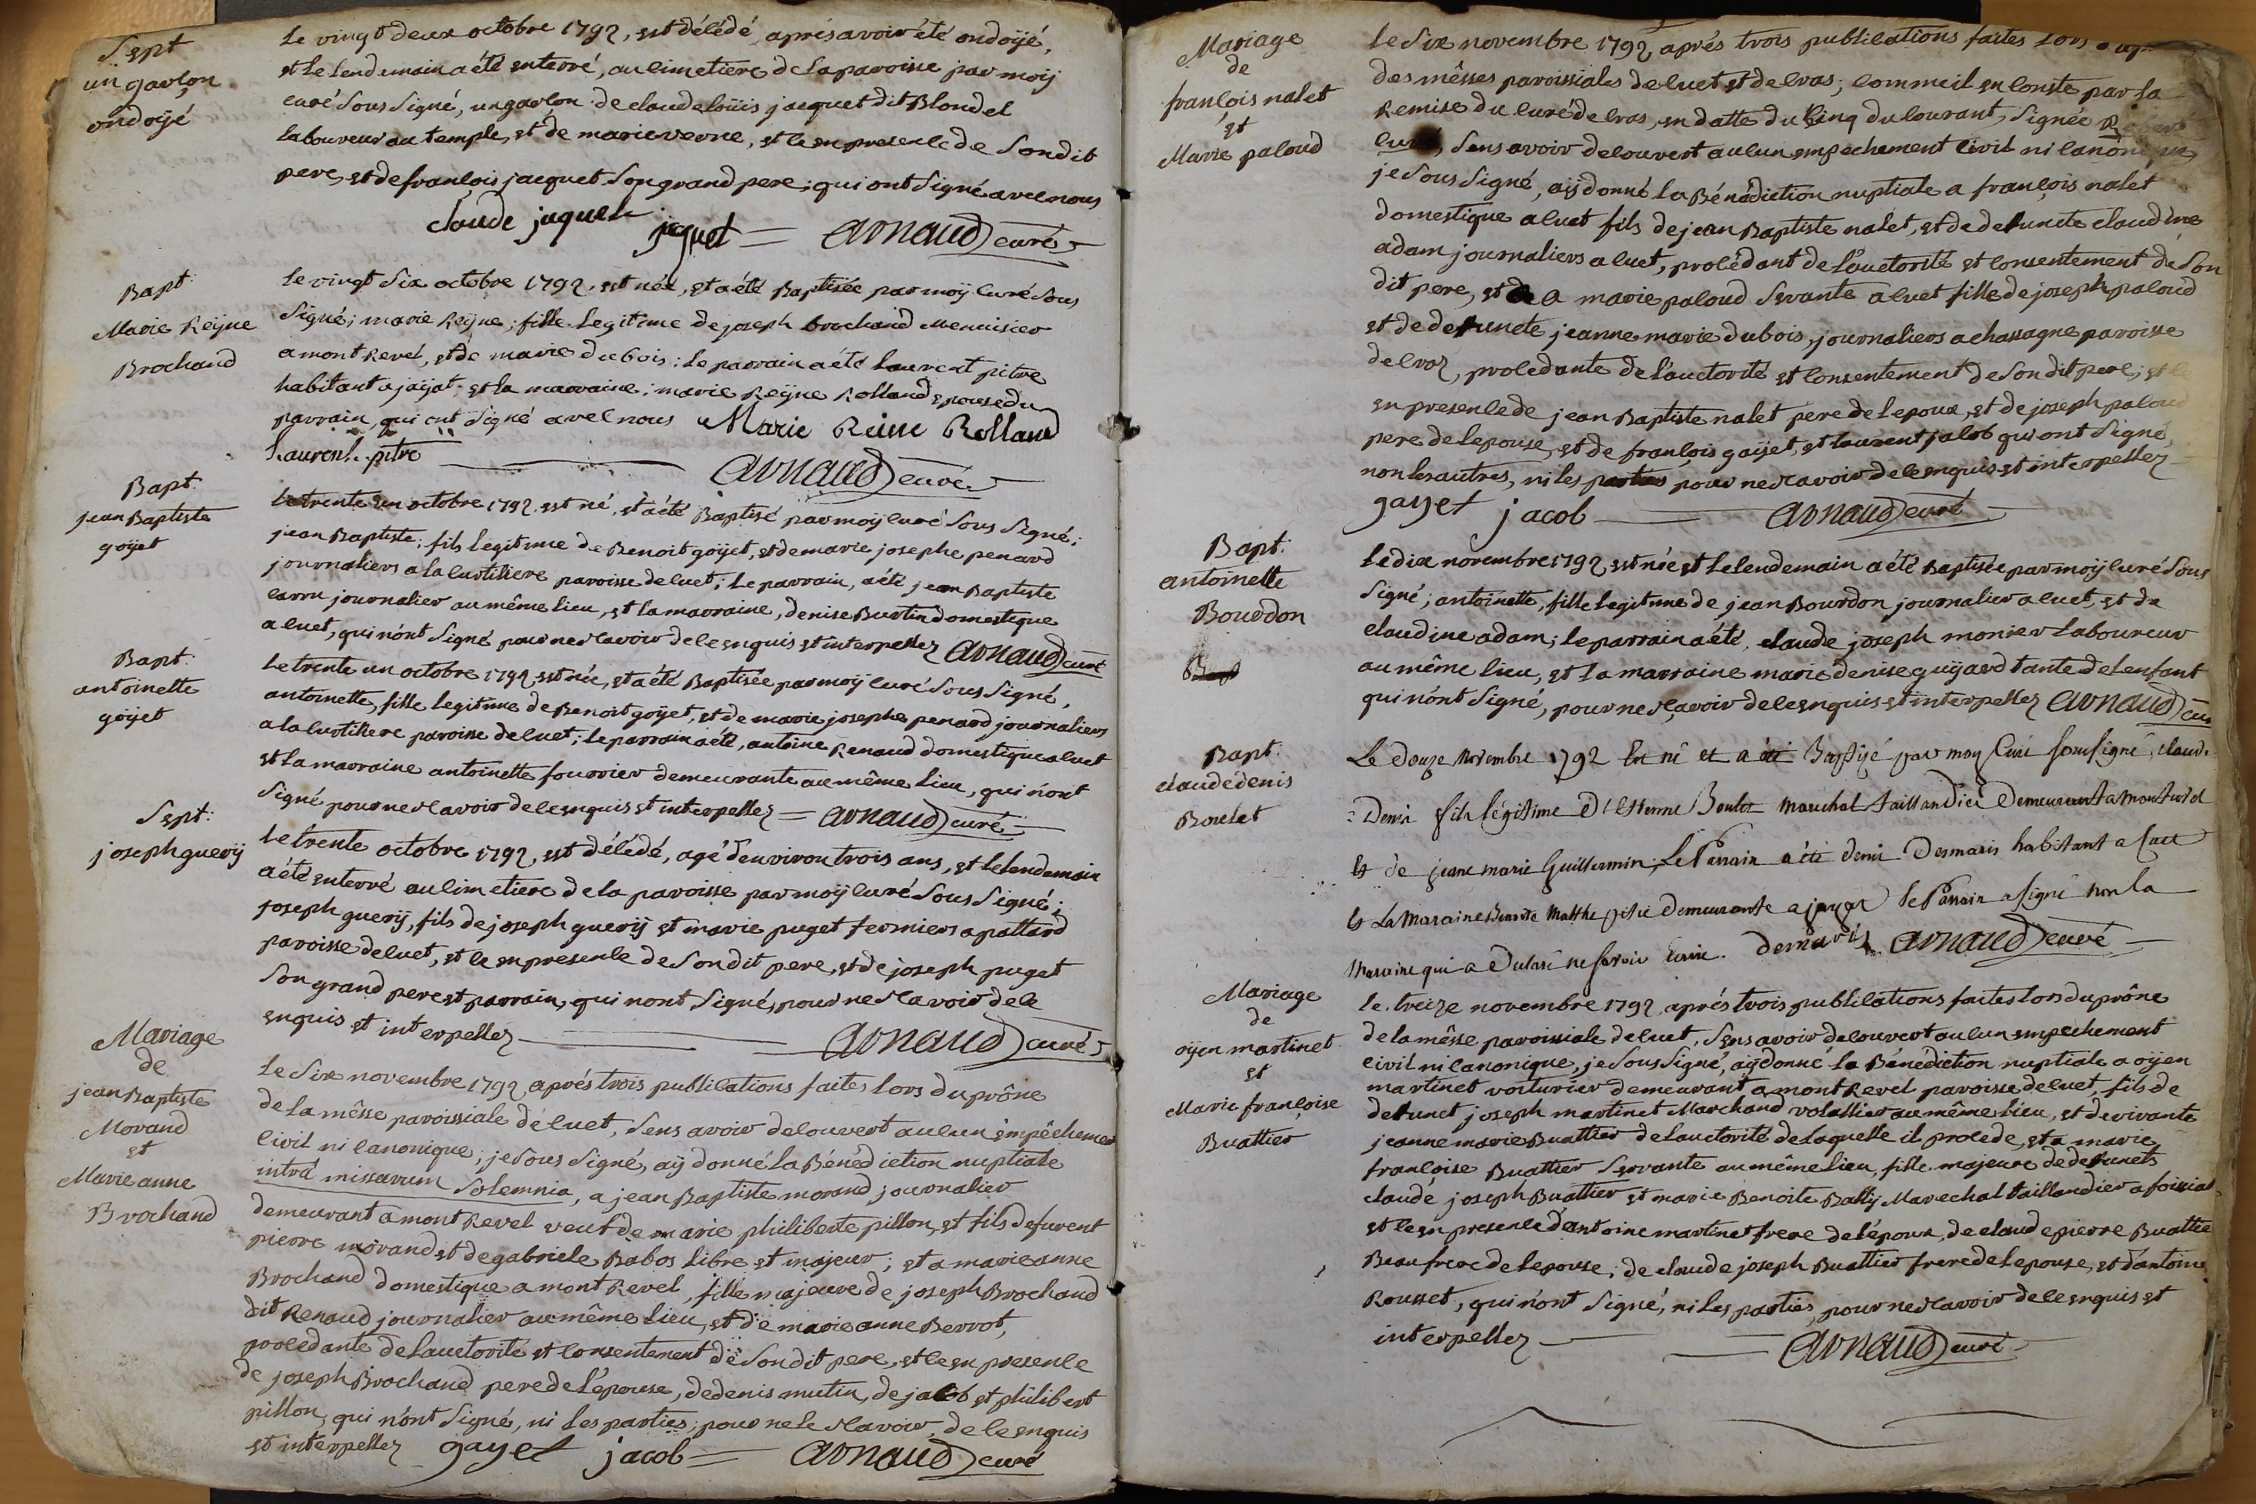 Sept
un garçon
ondoÿé
Le vingt deux octobre 1792, est décédé, aprés avoir été ondoÿé,
et Le lendemain a été enterré, au cimetiere de La paroisse par moÿ
curé Sous Signé, un garçon de claude Loüis jacquet dit Blondel
Laboureur au temple, et de marie verne, et ce en presence de Son dit
pere, et de françois jacquet Son grand pere; qui ont Signé avec nous
claude jaquet jaquet = arnaud curé
Bapt:
Marie Reÿne
Brochand
Le vingt Six octobre 1792, est née, et a été Baptisée par moÿ curé Sous
Signé; marie Reÿne; fille Legitime de joseph brochand Menuisier
a mont Revel, et de marie dubois: Le parrain a été Laurent pitre
habitant a jaÿat; et La marraine; marie Reÿne Rolland epouse du
parrain, qui ont Signé avec nous Marie Reine Rolland
Laurent pitre arnaud curé
Bapt:
jean Baptiste
goÿet
Le trente un octobre 1792, est né, et a été Baptisé par moÿ curé Sous Signé;
jean Baptiste; fils Legitime de Benoit goÿet, et de marie josephe penard
journaliers a la curtiliere paroisse de cuet; Le parrain, a été jean Baptiste
carru journalier au même lieu, et La marraine, denise Burtin domestique
a cuet, qui n'ont Signé pour ne Scavoir de ce enquis et interpellez arnaud curé
Bapt:
antoinette
goÿet
Le trente un octobre 1792, est née, et a été Baptisée par moÿ curé Sous Signé,
antoinette, fille Legitime de Benoit goÿet, et de marie josephe penard journaliers
a la curtiliere paroisse de cuet; Le parrain a été, antoine Renaud domestique a cuet
et La marraine antoinette fourrier demeurante au même Lieu, qui n'ont
Signé pour ne Scavoir de ce enquis et interpellez = arnaud curé
Sept:
joseph guerÿ
Le trente octobre 1792, est décédé, agé d'environ trois ans, et Le lendemain
a été enterré au cimetiere de la paroisse par moÿ curé Sous Signé;
joseph guerÿ, fils de joseph guerÿ et marie puget fermiers a pattard
paroisse de cuet, et ce en presence de Son dit pere, et de joseph puget
Son grand pere et parrain, qui n'ont Signé, pour ne Scavoir de ce
enquis et interpellez arnaud curé
Mariage
de
jean Baptiste
Morand
et
Marie anne
Brochand
Le Six novembre 1792, aprés trois publications faites Lors du prône
de La mésse paroissiale de cuet, Sens avoir découvert aucun empêchement
civil ni canonique; je Sous Signé, aÿ donné La Bénédiction nuptiale
intrà missarum Solemnia, a jean Baptiste morand journalier
demeurant a mont Revel veuf de marie philiberte pillon, et fils de furent
pierre morand et de gabriele Babos libre et majeur; et a marie anne
Brochand domestique a mont Revel, fille majeure de joseph Brochand
dit Renaud journalier au même lieu, et de marie anne Berrot,
procédante de L'auctorité et consentement de Son dit pere, et ce en presence
de joseph Brochand pere de L'épouse, de denis mutin, de jacob et philibert
pillon, qui n'ont Signé, ni Les parties; pour ne le Scavoir, de ce enquis
et interpellez gayet jacob = arnaud curé
Mariage
de
françois nalet
et
Marie paloud
Le Six novembre 1792, aprés trois publications faites Lors
des mêsses paroissiales de cuet et de cras; comme il en conste par la
Remise du curé de cras, en datte du Cinq du courant, Signée
curé, Sens avoir découvert aucun empechement Civil ni canonique
je Sous Signé, aÿ donné La Bénédiction nuptiale a françois nalet
domestique a cuet fils de jean Baptiste nalet, et de defuncte claudine
adam journaliers a cuet, procédant de L'auctorité et consentement de Son
dit pere, et a marie paloud Servante a cuet fille de joseph paloud
et de defuncte jeanne marie dubois, journaliers a chassagne paroisse
de cras, procedante de L'auctorité et consentement de Son dit pere; et
en presence de jean Baptiste nalet pere de Lepoux, et de joseph paloud
pere de Lepouse, et de françois gaÿet, et Laurent jacob qui ont Signé,
non les autres, ni les parties pour ne Scavoir de ce enquis et interpellez
gayet jacob arnaud curé
Bapt:
antoinette
Bourdon
Le dix novembre 1792, est née et Le lendemain a été Baptisée par moÿ curé Sous
Signé; antoinette, fille Legitime de jean Bourdon journalier a cuet, et de
claudine adam; Le parrain a été, claude joseph monier Laboureur
au même lieu, et La marraine marie denise guÿard tante de Lenfant
qui n'ont Signé, pour ne Sçavoir de ce enquis et interpellez arnaud curé
Bapt:
claude denis
Boulet
Le Douze Novembre 1792 Est né et a été Baptisé par moy Curé Soussigné, claude
Denis fils légitime D'Etienne Boulet Marechal taillandier Demeurant a Montrevel
Et de jeane marie Guillermin; Le Parrain a été denis Desmaris habitant a Cuet
Et La Maraine Benoite Matthe demeurante a le Parrain a signé non la
Maraine qui a Declaré ne Savoir Ecrire. Demaris arnaud curé
Mariage
de
oÿen martinet
et
Marie françoise
Buattier
Le treize novembre 1792, aprés trois publications faites Lors du prône
de la mêsse paroissiale de cuet, Sens avoir découvert aucun empêchement
civil ni canonique, je Sous Signé, aÿ donné La Bénédiction nuptiale a oÿen
martinet voiturier demeurant a mont Revel paroisse de cuet, fils de
defunct joseph martinet Marchand volallier au même Lieu, et de vivante
jeanne marie Buattier de Lauctorité de Laquelle il procede, et a marie
françoise Buattier Servante au même Lieu, fille majeure de defuncts
claude joseph Buattier et marie Benoite Ballÿ Marechal taillandier a foissiat,
et ce en presence d'antoine martinet frere de L'époux, de claude pierre Buattier
Beau frere de Lepouse; de claude joseph Buattier frere de Lepouse, et d'antoine
Rousset, qui n'ont Signé, ni Les parties, pour ne Scavoir de ce enquis et
interpellez arnaud curé